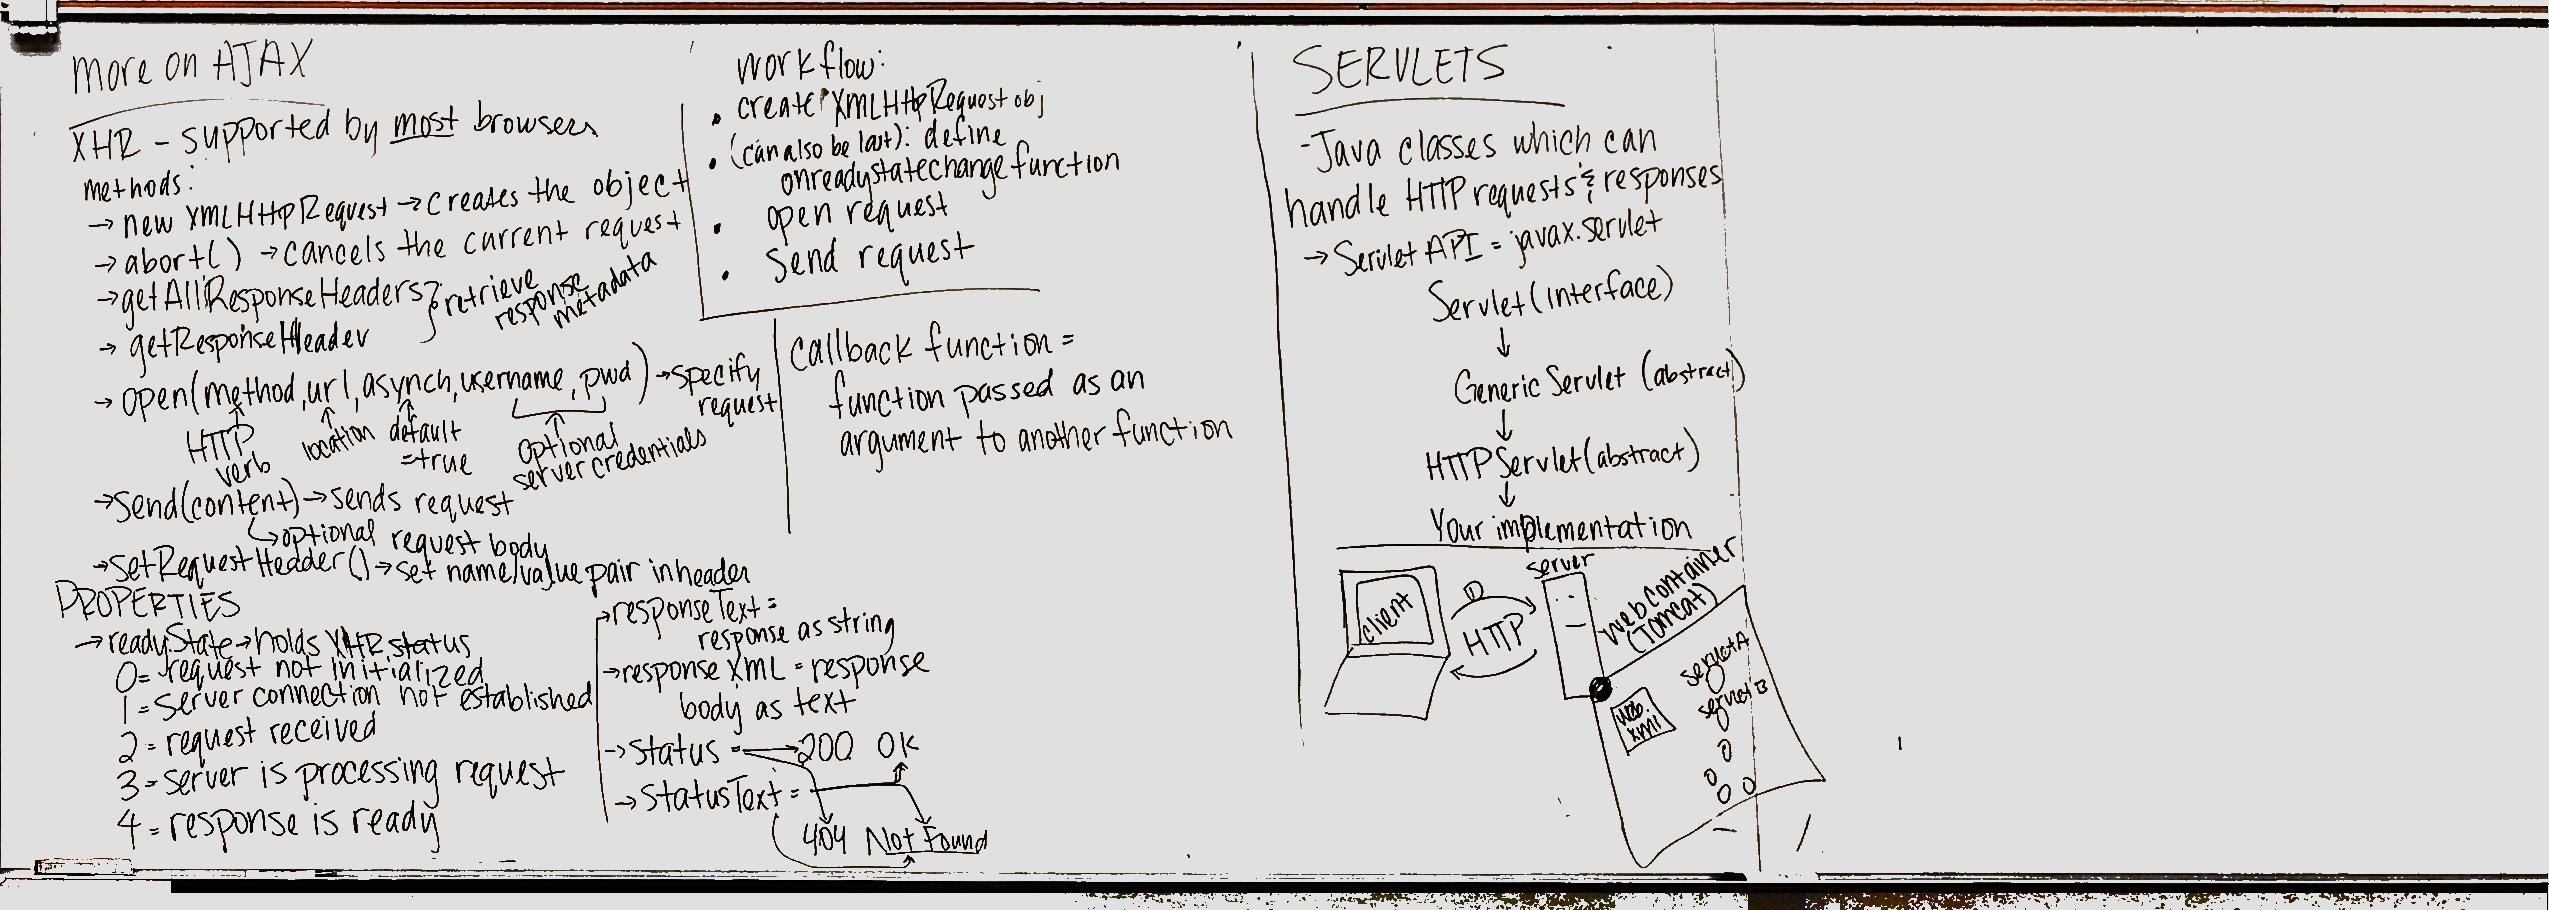 More on AJAX
XHR - supported by most browsers
methods:
→ new XMLHttpRequest → creates the object
→ abort() → cancels the current request
→ getAllResponseHeaders
→ getResponseHeader
} retrieve
response
metadata
→ open(method, url, asynch, username, pwd) → specify
request
HTTP
verb
location
default
= true
optional
server credentials
→ send(content) → sends request
↳ optional request body
→ setRequestHeader() → set name/value pair in header
PROPERTIES
→ readyState → holds XHR status
0 = request not initialized
1 = server connection not established
2 = request received
3 = server is processing request
4 = response is ready
→ responseText =
response as string
→ response XML = response
body as text
→ status = → 200 OK
→ StatusText =
404 Not Found
workflow:
• create XMLHttpRequest obj
• (can also be last): define
onreadystatechange function
• open request
• send request
callback function =
function passed as an
argument to another function
SERVLETS
- Java classes which can
handle HTTP requests & responses
→ Servlet API = javax.servlet
Servlet (interface)
↓
Generic Servlet (abstract)
↓
HTTP Servlet (abstract)
↓
Your implementation
client
HTTP
server
Web Container
(Tomcat)
web.
xml
servlet A
servlet B